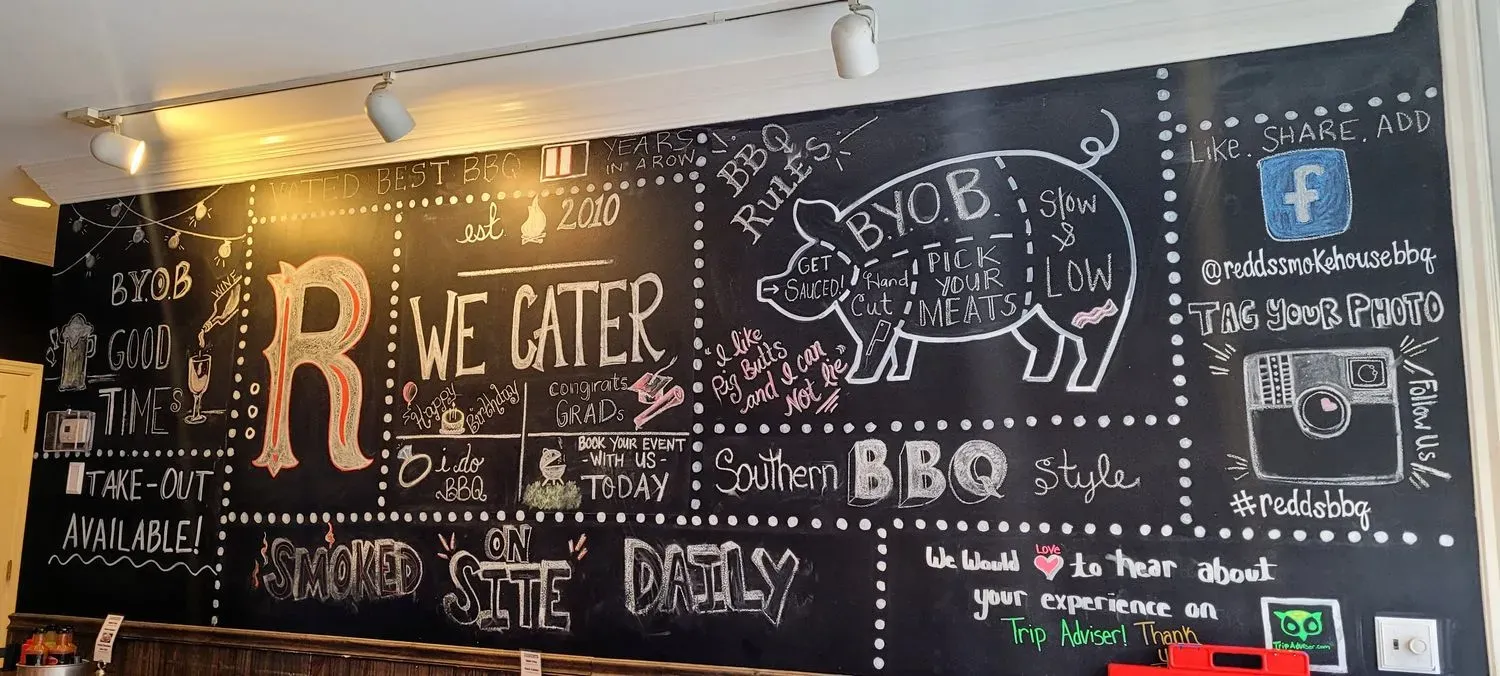 B.Y.O.B
WINE
GOOD
TIMES
TAKE-OUT
AVAILABLE!
VOTED BEST BBQ
YEARS
IN A ROW
R
est. 2010
WE CATER
Happy
Birthday
congrats
GRADS
i do
BBQ
BOOK YOUR EVENT
-WITH US-
TODAY
SMOKED
ON
SITE
DAILY
BBQ
RULES
B.Y.O.B.
GET
SAUCED!
Hand
Cut
PICK
YOUR
MEATS
Slow
&
LOW
"I like
Pig Butts
and I can
Not lie"
Southern BBQ Style
LIKE. SHARE. ADD
f
@reddssmokehousebbq
TAG YOUR PHOTO
Follow Us
#reddsbbq
We Would LOVE to hear about
your experience on
Trip Adviser! Thank
TripAdviser.com